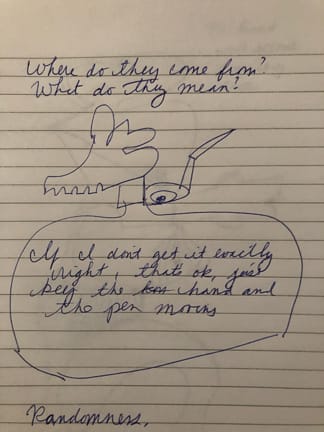 Where do they come from?
What do they mean?
If I don't get it exactly
right, that's ok, just
keep the hand and
the pen moving
Randomness.